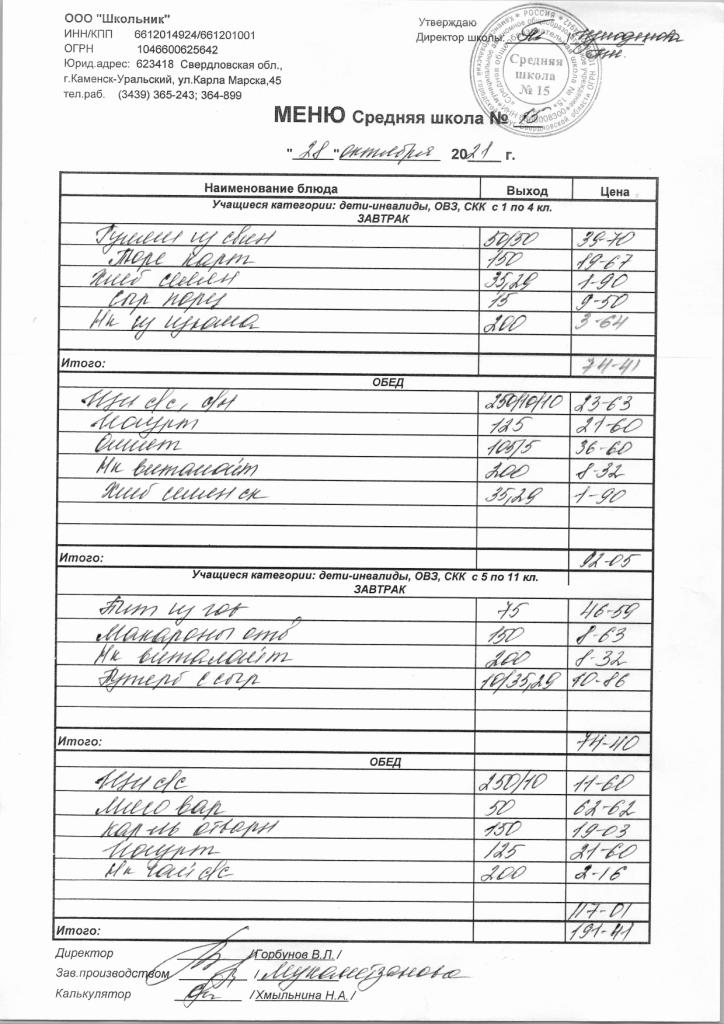 ООО "Школьник"
ИНН/КПП 6612014924/661201001
ОГРН 1046600625642
Юрид.адрес: 623418 Свердловская обл.,
г.Каменск-Уральский, ул.Карла Маркса,45
тел.раб. (3439) 365-243; 364-899
Утверждаю
Директор школы:
Средняя
школа
№ 15
МЕНЮ Средняя школа № 15
"28" октября 2021 г.
Наименование блюда Выход Цена
Учащиеся категории: дети-инвалиды, ОВЗ, СКК с 1 по 4 кл.
ЗАВТРАК
Гуляш из свин 50/50 39-70
Пюре карт 150 19-67
Хлеб семен 35,29 1-90
Сыр порц 15 9-50
Нк из изюма 200 3-64
Итого: 74-41
ОБЕД
Щи с/с, с/м 250/10/10 23-63
Йогурт 125 21-60
Омлет 105/5 36-60
Нк витолайт 200 8-32
Хлеб семен ск 35,29 1-90
Итого: 92-05
Учащиеся категории: дети-инвалиды, ОВЗ, СКК с 5 по 11 кл.
ЗАВТРАК
Бит из гов 75 46-59
Макароны отв 150 8-63
Нк витолайт 200 8-32
Бутерб с сыр 10/35,29 10-86
Итого: 74-40
ОБЕД
Щи с/с 250/10 11-60
Мясо вар 50 62-62
Кар ль отварн 150 19-03
Йогурт 125 21-60
Нк чай с/с 200 2-16
117-01
Итого: 191-41
Директор /Горбунов В.Л./
Зав.производством / Мухаметзянова
Калькулятор / Хмыльнина Н.А. /